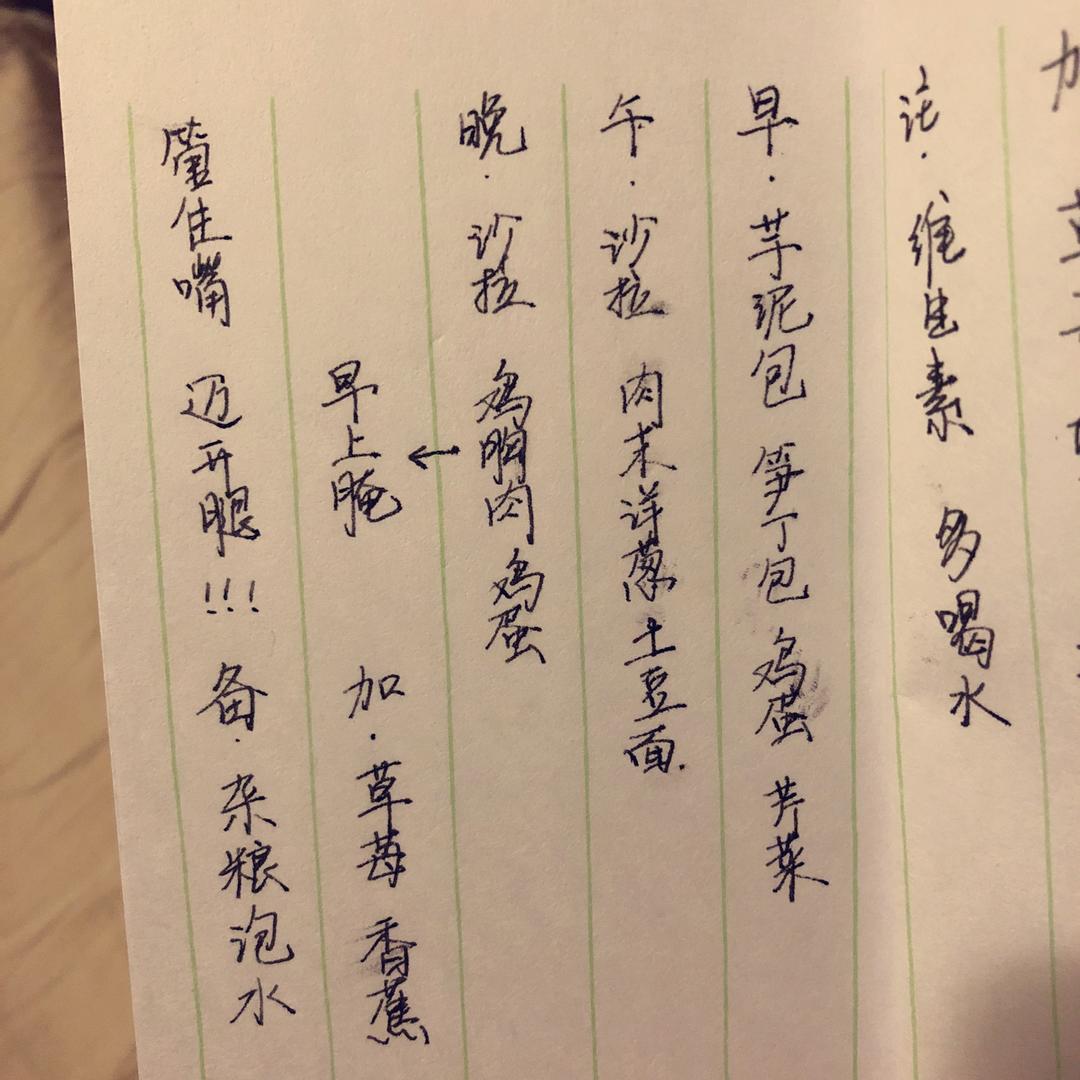 加
注·维生素 多喝水
早·芋泥包 笋丁包 鸡蛋 芹菜
午·沙拉 肉末洋葱土豆面.
晚·沙拉 鸡胸肉 鸡蛋
←早上腌 加·草莓 香蕉
管住嘴 迈开腿!!! 备·杂粮泡水